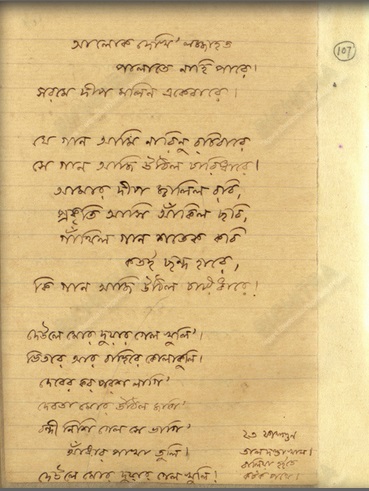 107
আলোক দেখি' লজ্জাহত
পালাতে নাহি পারে।
সরমে দীপ মলিন একেবারে।
যে গান আমি নারিনু রচিবারে
সে গান আজি উঠিল চারিধারে।
আমার দীপ জ্বালিল রবি,
প্রকৃতি আসি আঁকিল ছবি,
গাঁথিল গান শতেক কবি
কতই ছন্দ হারে,
কি গান আজি উঠিল চারিধারে!
দেউলে মোর দুয়ার গেল খুলি'।
ভিতরে আর বাহিরে কোলাকুলি।
দেবের কর পরশ লাগি'
দেবতা মোর উঠিল জাগি'
বন্দী নিশি গেল সে ভাগি'
আঁধার পাখা তুলি।
দেউলে মোর দুয়ার গেল খুলি!
২৩ ফাল্গুন
বালিয়া হইতে